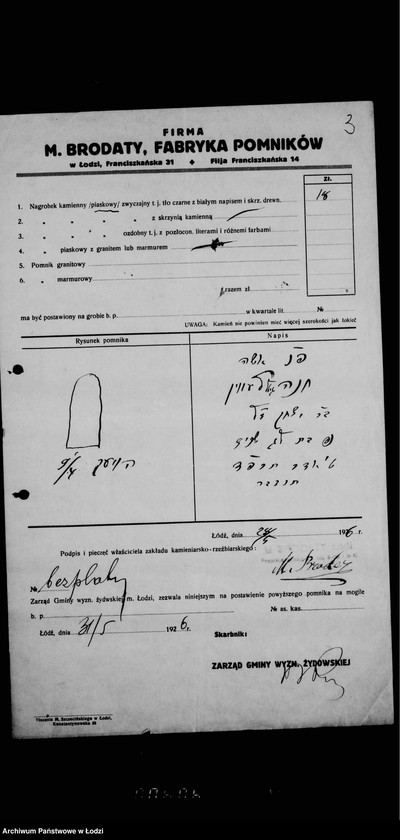 3
FIRMA
M. BRODATY, FABRYKA POMNIKÓW
w Łodzi, Franciszkańska 31 ✦ Filja Franciszkańska 14
Zł.
1. Nagrobek kamienny /piaskowy/ zwyczajny t. j. tło czarne z białym napisem i skrz. drewn. 18
2. " " " " z skrzynią kamienną
3. " " " ozdobny t. j. z pozłocon. literami i różnemi farbami
4. " piaskowy z granitem lub marmurem
5. Pomnik granitowy
6. " marmurowy
razem zł.
ma być postawiony na grobie b. p. w kwartale lit. №
UWAGA: Kamień nie powinien mieć więcej szerokości jak łokieć
Rysunek pomnika
Napis
פנ אשה
חנה
בר יצחק
תנצבה
Łódź, dnia 1926 r.
Podpis i pieczęć właściciela zakładu kamieniarsko-rzeźbiarskiego:
№ bezpłatny M. Brodaty
Zarząd Gminy wyzn. żydwskiej m. Łodzi, zezwala niniejszym na postawienie powyższego pomnika na mogile
b. p. № as. kas.
Łódź, dnia 31/5 1926 r.
Skarbnik:
ZARZĄD GMINY WYZN. ŻYDOWSKIEJ
Tłocznia M. Szczecińskiego w Łodzi,
Archiwum Państwowe w Łodzi